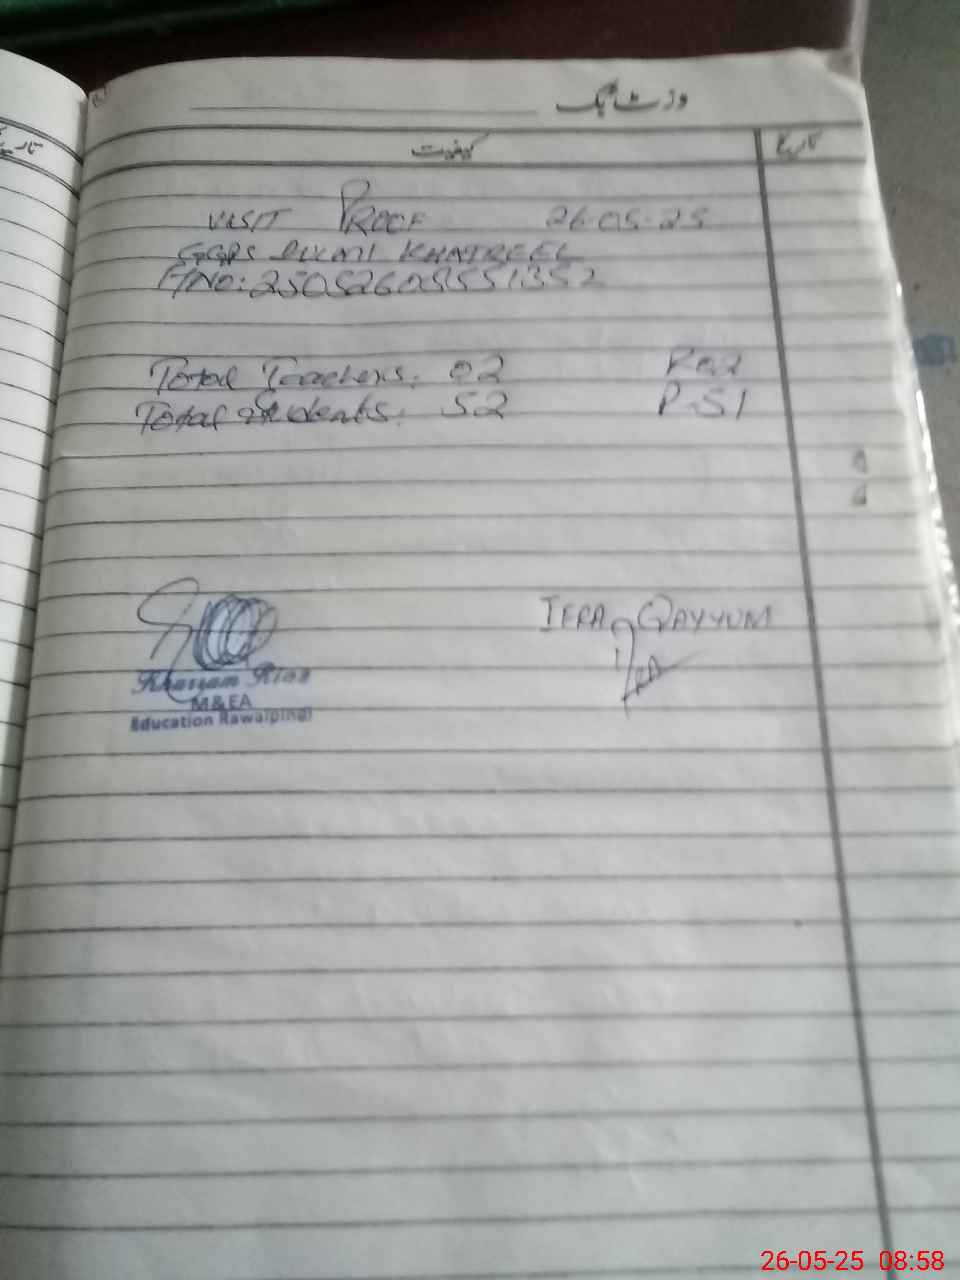 وزٹ بک
تاریخ
کیفیت
تاریخ
VISIT PROOF 26-05-25
GGPS KHATREEL
Total Teachers: 02 P-02
Total Students: 52 P-51
IFRA QAYYUM
Ifra
Khayyam Riaz
M&EA
Education Rawalpindi
26-05-25 08:58